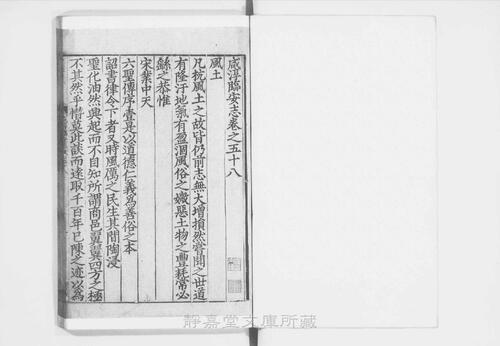 咸淳臨安志卷之五十八
風土
凡杭風土之故皆仍前志無大增損然嘗聞之世道
有隆汙地氣有盈涸風俗之媺惡土物之豐耗常必
繇之恭惟
宋業中天
六聖傳序壹是以道德仁義爲善俗之本
詔書律令下者又時風厲之民生其間陶浸
聖化油然興起而不自知所謂商邑翼翼四方之極
不其然乎惜莫此談而遠取千百年已陳之迹以爲
靜嘉堂文庫所藏